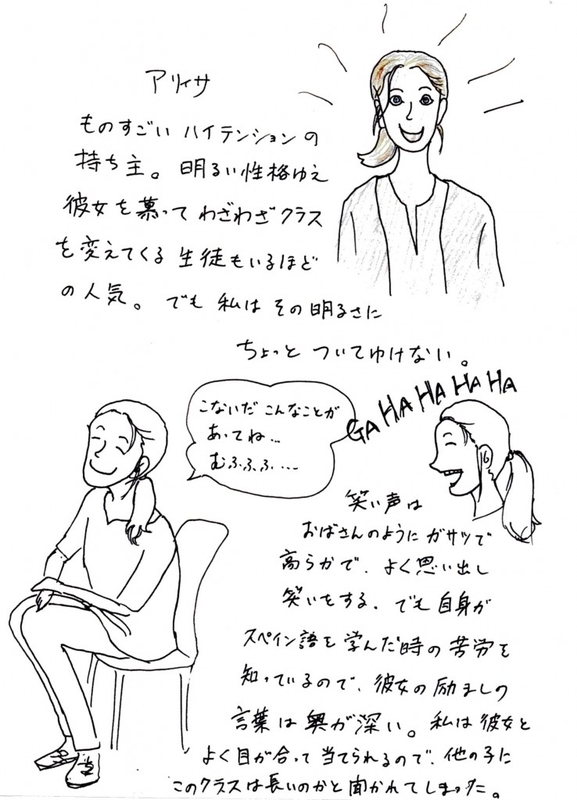 アリィサ
ものすごい ハイテンションの
持ち主。 明るい性格ゆえ
彼女を慕って わざわざ クラス
を変えてくる 生徒もいるほど
の人気。 でも 私は その明るさに
ちょっと ついてゆけない。
こないだ こんなことが
あってね…
むふふふ‥‥
GA HA HA HA HA
笑い声は
おばさんのように ガサツで
高らかで、よく思い出し
笑いをする。でも 自身が
スペイン語を学んだ時の苦労を
知っているので、彼女の励ましの
言葉は奥が深い。私は彼女と
よく目が合って当てられるので、他の子に
このクラスは長いのかと聞かれてしまった。